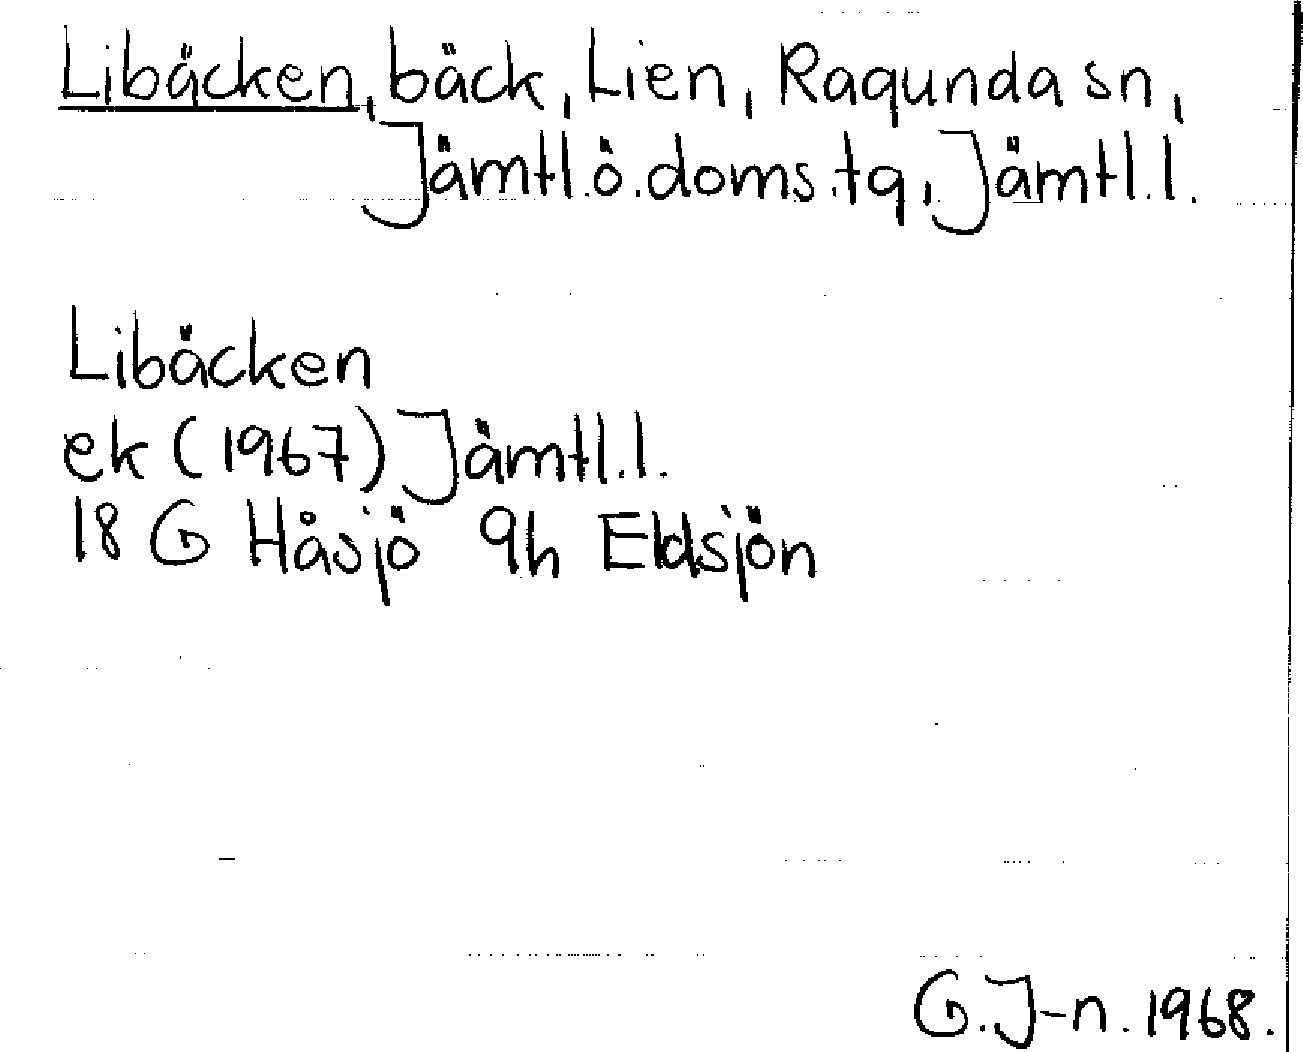 Libäcken, bäck, Lien, Ragunda sn,
Jämtl.ö.doms.tg, Jämtl.l.
Libäcken
ek (1967) Jämtl.l.
18 G Håsjö 9h Eldsjön
G.J-n. 1968.